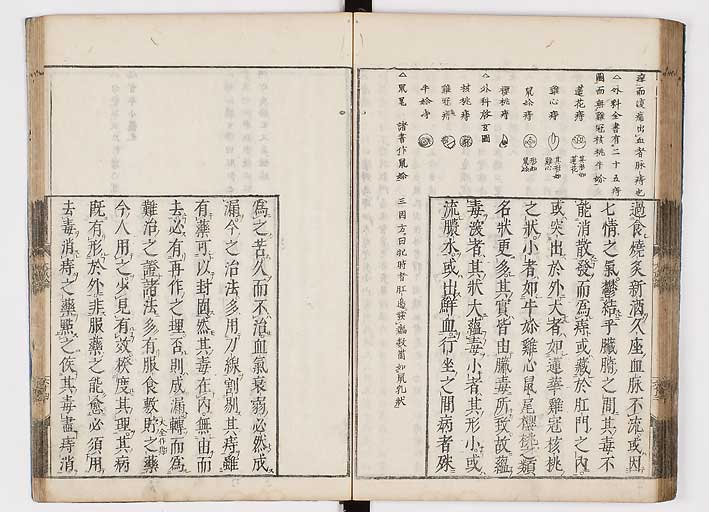 痒而後癰出血者脉痔也
△外科全書有二十五痔
圖而無雞冠核桃牛妳
蓮花痔 其形如蓮花
雞心痔 其形如雞心
鼠妳痔 形如鼠妳
櫻桃痔
△外科啟玄圖
核桃痔
雞冠痔
牛妳痔
△鼠尾 諸書作鼠妳
三因方曰
過食燒炙新酒久座血脉不流或因
七情之氣鬱結乎臟腑之間其毒不
能消散發而為痔或藏於肛門之內
或突出於外大者如蓮華雞冠核桃
之狀小者如牛妳雞心鼠尾櫻桃類
名狀更多其實皆由臟毒所致故蘊
毒深者其狀大蘊毒小者其形小或
流膿水或出鮮血行坐之間病者殊
為之苦久而不治血氣衰弱必然成
漏今之治法多用刀線割剔其痔雖
有藥可以封固然其毒在內無由而
去必有再作之理否則成漏輙而為
難治之證諸法多有服食敷貼之藥
今人用之少見有效揆度其理其病
既有形於外非服藥之能愈必須用
去毒消痔之藥點之俟其毒盡痔消